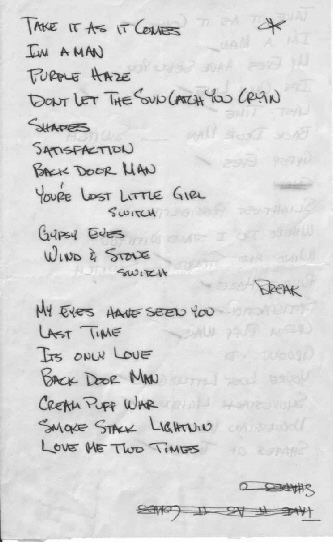 TAKE IT AS IT COMES
I'M A MAN
PURPLE HAZE
DONT LET THE SUN CATCH YOU CRYIN
SHADES
SATISFACTION
BACK DOOR MAN
YOU'RE LOST LITTLE GIRL
SWITCH
GYPSY EYES
WIND & STONE
SWITCH
BREAK
MY EYES HAVE SEEN YOU
LAST TIME
ITS ONLY LOVE
BACK DOOR MAN
CREAM PUFF WAR
SMOKE STACK LIGHTNIN
LOVE ME TWO TIMES